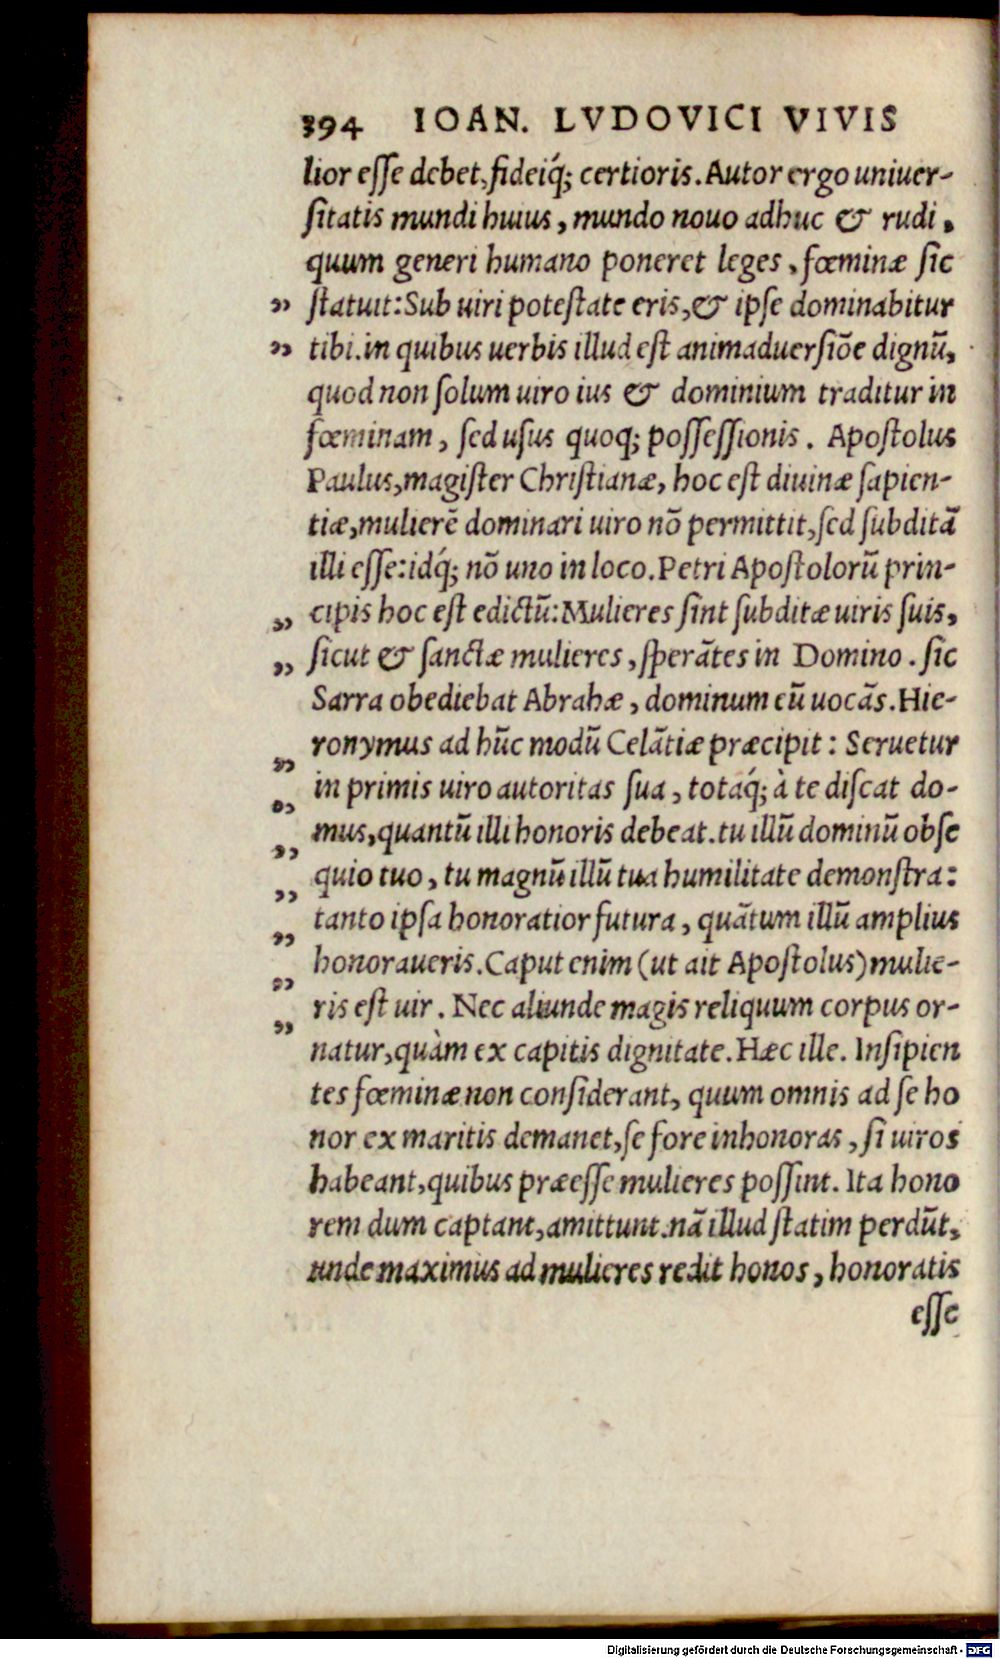 394 IOAN. LVDOVICI VIVIS
lior esse debet, fideiq́; certioris. Autor ergo uniuer-
sitatis mundi huius, mundo nouo adhuc & rudi,
quum generi humano poneret leges, fœminæ sic
„ statuit: Sub uiri potestate eris, & ipse dominabitur
„ tibi. in quibus uerbis illud est animaduersiōe dignū,
quod non solum uiro ius & dominium traditur in
fœminam, sed usus quoq; possessionis. Apostolus
Paulus, magister Christianæ, hoc est diuinæ sapien-
tiæ, mulierē dominari uiro nō permittit, sed subditā
illi esse: idq́; nō uno in loco. Petri Apostolorū prin-
„ cipis hoc est edictū: Mulieres sint subditæ uiris suis,
„ sicut & sanctæ mulieres, sperātes in Domino. sic
Sarra obediebat Abrahæ, dominum eū uocās. Hie-
„ ronymus ad hūc modū Celātiæ præcipit: Seruetur
„ in primis uiro autoritas sua, totaq́; à te discat do-
„ mus, quantū illi honoris debeat. tu illū dominū obse
„ quio tuo, tu magnū illū tua humilitate demonstra:
„ tanto ipsa honoratior futura, quātum illū amplius
„ honoraueris. Caput enim (ut ait Apostolus) mulie-
„ ris est uir. Nec aliunde magis reliquum corpus or-
natur, quàm ex capitis dignitate. Hæc ille. Insipien
tes fœminæ non considerant, quum omnis ad se ho
nor ex maritis demanet, se fore inhonoras, si uiros
habeant, quibus præesse mulieres possint. Ita hono
rem dum captant, amittunt. nā illud statim perdūt,
unde maximus ad mulieres redit honos, honoratis
esse
Digitalisierung gefördert durch die Deutsche Forschungsgemeinschaft - DFG